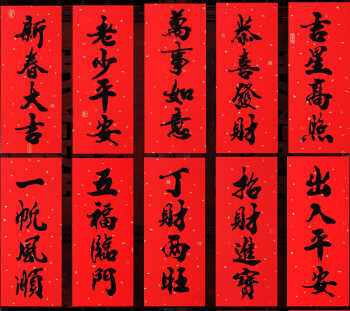 吉星高照
恭喜發財
萬事如意
老少平安
新春大吉
出入平安
招財進寶
丁財兩旺
五福臨門
一帆風順